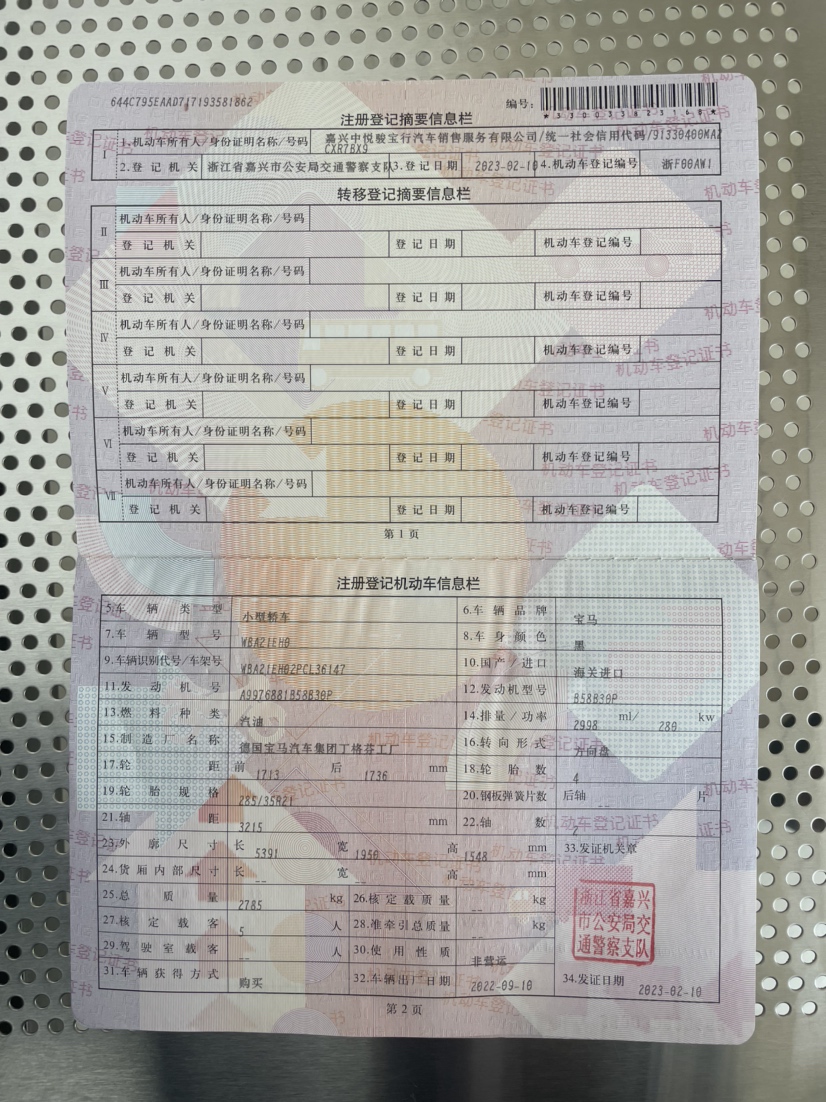 644C795EAAD717193581862 编号:
*330033823168*
注册登记摘要信息栏
I 1.机动车所有人/身份证明名称/号码 嘉兴中悦骏宝行汽车销售服务有限公司/统一社会信用代码/91330400MA2
CXR7BX9
2.登记机关 浙江省嘉兴市公安局交通警察支队 3.登记日期 2023-02-10 4.机动车登记编号 浙F00AW1
转移登记摘要信息栏
II 机动车所有人/身份证明名称/号码
登记机关 登记日期 机动车登记编号
III 机动车所有人/身份证明名称/号码
登记机关 登记日期 机动车登记编号
IV 机动车所有人/身份证明名称/号码
登记机关 登记日期 机动车登记编号
V 机动车所有人/身份证明名称/号码
登记机关 登记日期 机动车登记编号
VI 机动车所有人/身份证明名称/号码
登记机关 登记日期 机动车登记编号
VII 机动车所有人/身份证明名称/号码
登记机关 登记日期 机动车登记编号
第1页
注册登记机动车信息栏
5.车辆类型 小型轿车 6.车辆品牌 宝马
7.车辆型号 WBA21EH0 8.车身颜色 黑
9.车辆识别代号/车架号 WBA21EH02PCL36147 10.国产/进口 海关进口
11.发动机号 A9976881B58B30P 12.发动机型号 B58B30P
13.燃料种类 汽油 14.排量/功率 2998 ml/ 280 kw
15.制造厂名称 德国宝马汽车集团丁格芬工厂 16.转向形式 方向盘
17.轮距 前 1713 后 1736 mm 18.轮胎数 4
19.轮胎规格 285/35R21 20.钢板弹簧片数 后轴 -- 片
21.轴距 3215 mm 22.轴数 2
23.外廓尺寸 长 5391 宽 1950 高 1548 mm 33.发证机关章
24.货厢内部尺寸 长 -- 宽 -- 高 -- mm
25.总质量 2785 kg 26.核定载质量 -- kg
27.核定载客 5 人 28.准牵引总质量 -- kg
29.驾驶室载客 -- 人 30.使用性质 非营运
31.车辆获得方式 购买 32.车辆出厂日期 2022-09-10 34.发证日期 2023-02-10
浙江省嘉兴
市公安局交
通警察支队
第2页